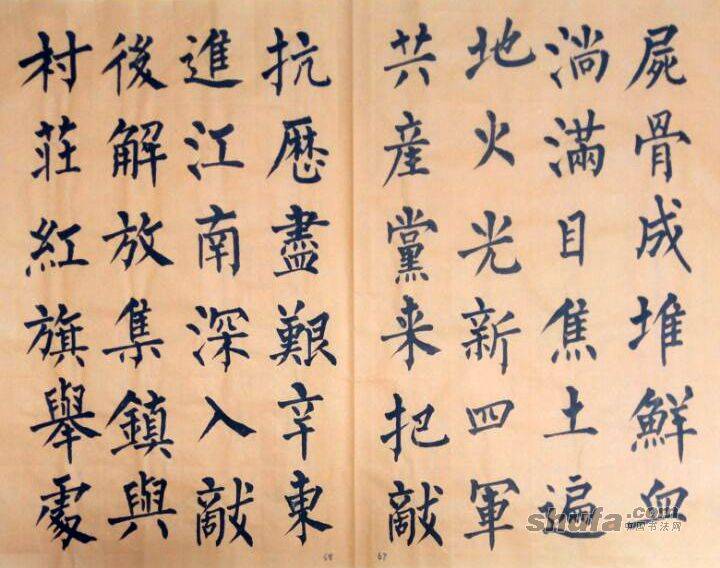 屍骨成堆鮮血
淌滿目焦土遍
地火光新四軍
共産黨来把敵
抗歷盡艱辛東
進江南深入敵
後解放集鎮與
村莊紅旗舉處
67
68
shufa.com
中国书法网